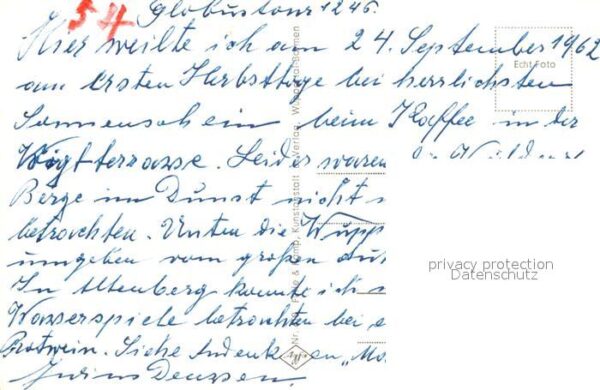 54
Globustour 1246.
Hier weilte ich am 24. September 1962
am ersten Herbsttage bei herrlichsten
Echt Foto
Sonnenschein beim Kaffee in der
Voigtterrasse. Leider waren
Berge im Dunst nicht
betrachten. Unten die Wupp
umgeben vom großen
In Altenberg konnte ich
Wasserspiele betrachten bei
Rotwein. Siehe Andenken „Mo
Julius Deussen.
privacy protection
Datenschutz